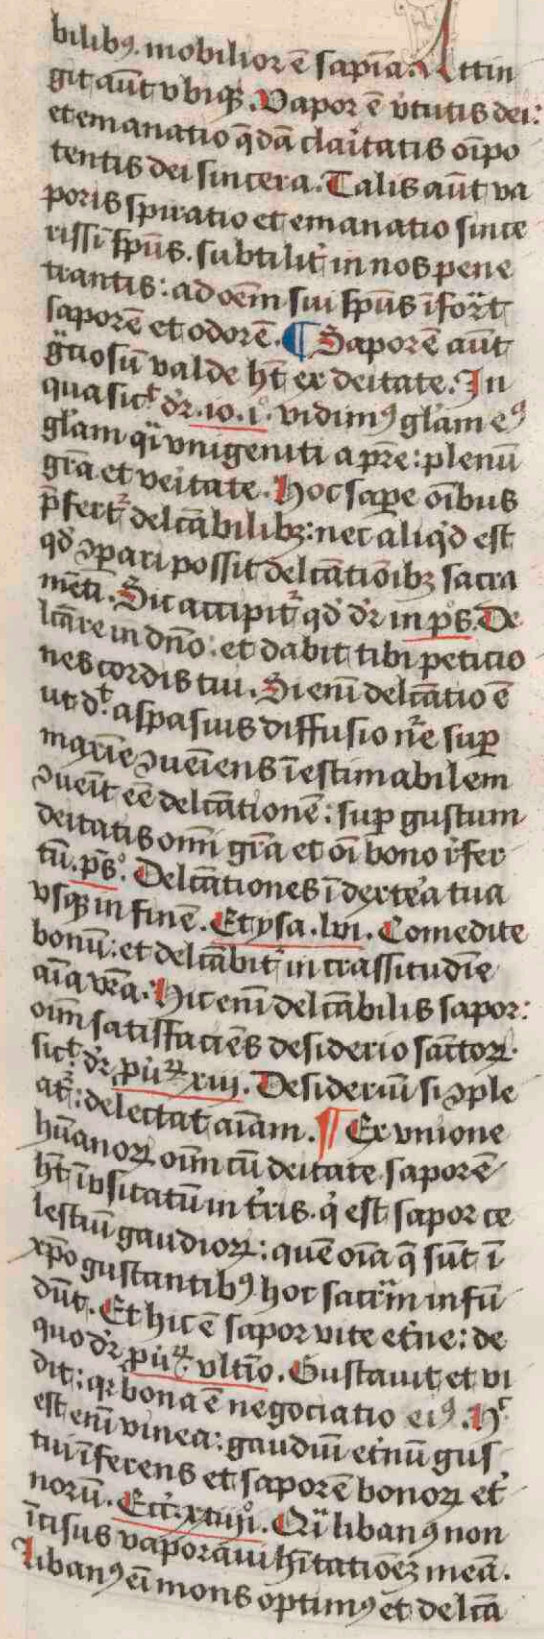 bilibꝯ. mobilior ē sapīa. Attin
git aūt vbiqꝫ. Vapor ē v̓tutis dei:
et emanatio q̄dā clar̓itatis oīpo
tentis dei sincera. Talis aūt va
poris spiratio et emanatio since
rissī sp̄us. subtilit̓ in nos pene
trantis: ad oēm sui sp̄us īfor̄t
saporē et odorē. ¶ Saporē aūt
gͣciosū valde hꝫt ex deitate. In
qua sicᵗ dr̄. io. i°. vidimꝯ gl̄am eꝯ
gl̄am qͣi vnigeniti a pr̄e: plenū
gr̄a et ve͛itate. Hoc sapore oībus
p̄fert᷑ delcābilibꝫ: nec aliq̇d est
qd̓ ꝯpari possit delcātiōibꝫ sacra
mēti. Sic accipit᷑ qd̓ dr̄ in pͦs. De
lcāre in dn̄o: et dabit tibi peticio
nes cordis tui. Si eni̅ delcātio ē
ut d.ᵗ aspasius diffusio nr̄e sup̲
maxīe ꝯueīens īestimabilem
ꝯueīt eē delcātionē: sup̲ gustum
deitatis omī gr̄a et oī bono r̓fer
tū. pͦs°. Delcātiones ī dexte͛a tua
vsqꝫ in finē. Et ysa. lvi. Comedite
bonū: et delcābit᷑ in crassitudīe
aīa vr̄a. Hic eni̅ delcābilis sapor:
oīm satisfaciēs desiderio sāctoꝝ.
sicᵗ. dr̄. pu̇ꝝ xiii. Desideriū si ꝯple
at᷑: delectat aīam. ¶ Ex vnione
hūanoꝝ oīm cū deitate. saporē
hꝫt īvsitatum in t̓ris. q̇ est sapor ce
lestiū gaudioꝝ: quē oīa q̄ sūt ī
xp̄o gustantibꝯ hoc sacr̄m infū
dūt. Et hic ē sapor vite et͛ne: de
quo dr̄ pu̇ꝝ. vltīo. Gustauit et vi
dit: qꝛ bona ē negociatio eiꝯ. Hᶜ
est eni̅ vinea: gaudiū et͛nū gus
tui īferens et saporē bonoꝝ et͛
noꝝ. Ecc̓. xxiiii°. Qͣi libanꝯ non
īcisus vaporaui hītatiōeꝫ meā.
Libanꝯ ei̅ mons optimꝯ et delcā